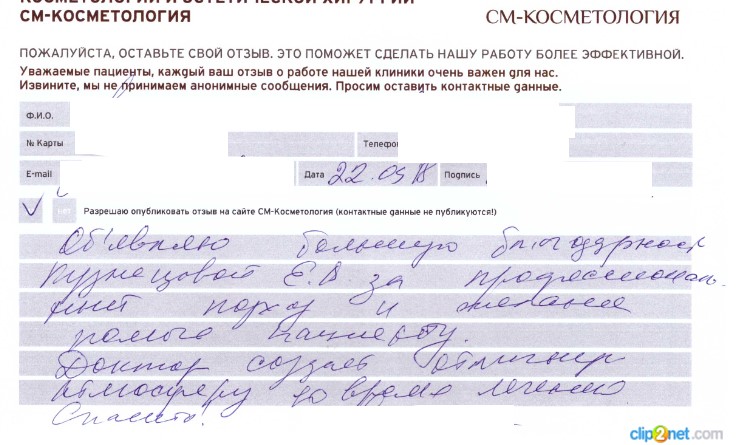 КОСМЕТОЛОГИИ И ЭСТЕТИЧЕСКОЙ ХИРУРГИИ
СМ-КОСМЕТОЛОГИЯ
СМ-КОСМЕТОЛОГИЯ
ПОЖАЛУЙСТА, ОСТАВЬТЕ СВОЙ ОТЗЫВ. ЭТО ПОМОЖЕТ СДЕЛАТЬ НАШУ РАБОТУ БОЛЕЕ ЭФФЕКТИВНОЙ.
Уважаемые пациенты, каждый ваш отзыв о работе нашей клиники очень важен для нас.
Извините, мы не принимаем анонимные сообщения. Просим оставить контактные данные.
Ф.И.О.
№ Карты Телефон
E-mail Дата 22.09 18 Подпись
нет Разрешаю опубликовать отзыв на сайте СМ-Косметология (контактные данные не публикуются!)
Объявляю большую благодарность
Кузнецовой Е.В. за профессиональ-
ный подход и желание
помочь пациенту.
Доктор создает отличную
атмосферу во время лечения
Спасибо!
clip2net.com